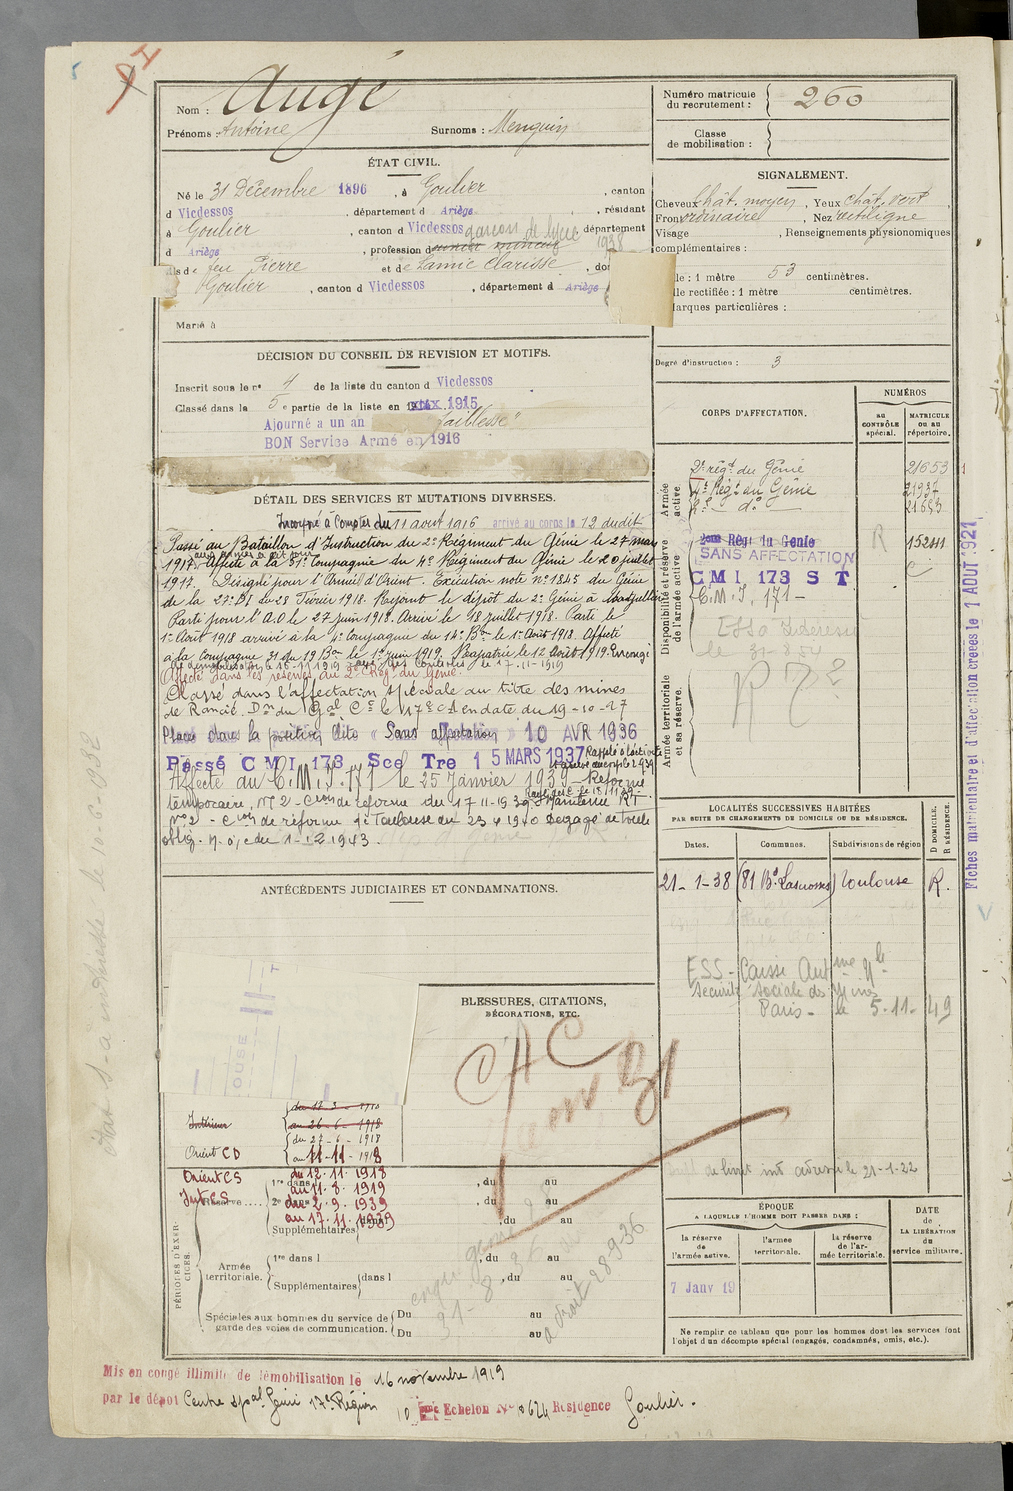 Nom : Augé
Prénoms : Antoine Surnoms : Menguin
Numéro matricule du recrutement : 260
Classe de mobilisation :
ÉTAT CIVIL.
Né le 31 Décembre 1896, à Goulier, canton
d Vicdessos, département d Ariège, résidant
à Goulier, canton d Vicdessos département
garçon de lycée 1938
d Ariège, profession d mineur
fils de feu Pierre et de Lamic Clarisse, do
Goulier, canton d Vicdessos, département d Ariège
Marié à
SIGNALEMENT.
Cheveux chât. moyen, Yeux chât. vert,
Front ordinaire, Nez rectiligne
Visage , Renseignements physionomiques
complémentaires :
lle : 1 mètre 53 centimètres.
lle rectifiée : 1 mètre centimètres.
arques particulières :
Degré d'instruction : 3
DÉCISION DU CONSEIL DE REVISION ET MOTIFS.
Inscrit sous le n° 4 de la liste du canton d Vicdessos
Classé dans la 5e partie de la liste en 1915
Ajourné a un an faiblesse"
BON Service Armé en 1916
CORPS D'AFFECTATION.
NUMÉROS
au CONTRÔLE spécial.
MATRICULE ou au répertoire.
Armée active
2e régt du Génie 21653
4e Régt du Génie 21937
2e do 21653
Disponibilité et réserve de l'armée active.
2eme Régt du Genie R
SANS AFFECTATION
CMI 173 S T C
C.M.I. 171 -
le 31-8-54
Armée territoriale et sa réserve.
DÉTAIL DES SERVICES ET MUTATIONS DIVERSES.
Incorporé à Compter du 11 aout 1916 arrivé au corps le 12 dudit
Passé au Bataillon d'Instruction du 2e Régiment du Génie le 27 mars
1917. Affecté à la 31e Compagnie du 4e Régiment du Génie le 20 juillet
1917. Désigné pour l'Armée d'Orient. Exécution note n° 1845 du Génie
de la 27e DI du 28 Février 1918. Rejoint le dépôt du 2e Génie à Montpellier
Parti pour l'A.O le 27 juin 1918. Arrivé le 18 juillet 1918. Parti le
1er Août 1918 arrivé à la 4e Compagnie du 14e Bon le 1er Août 1918. Affecté
à la Compagnie 31 du 19 Bon le 1er juin 1919. Rapatrié le 12 Août 1919. En congé
de démobilisation le 16-11-1919
Affecté dans les réserves au 2e Régt du Génie.
Classé dans l'affectation spéciale au titre des mines
de Rancié. Dn du Gal Ct le 17e CA en date du 19-10-27
Placé dans la position dite « Sans affectation » 10 AVR 1936
Passé CMI 173 Sce Tre 15 MARS 1937 Rappelé à l'activité
Affecté au C.M.I. 171 le 25 Janvier 1939 - Réformé
temporaire, n° 2 - Cion de réforme du 17-11-1939 Maintenu RT
n° 2 - Cion de réforme de Toulouse du 23 4 1940 Dégagé de toute
oblig. M. o/c du 1-12 1943.
LOCALITÉS SUCCESSIVES HABITÉES
PAR SUITE DE CHANGEMENTS DE DOMICILE OU DE RÉSIDENCE.
Dates. Communes. Subdivisions de région D DOMICILE. R RÉSIDENCE.
21-1-38 (81 Bd Lascrosses) Toulouse R.
ESS - Caisse Autme Nle
Sécurité Sociale des Mines
Paris - le 5-11-49
de livret int adressé le 21-1-22
ANTÉCÉDENTS JUDICIAIRES ET CONDAMNATIONS.
BLESSURES, CITATIONS,
DÉCORATIONS, ETC.
CAC
OUSE
Intérieur au 26-6-1918
Orient CD du 27-6-1918
au 11-11-1918
Orient CS du 12-11-1918
au 11-8-1919
Int CS du 2-9-1939
au 17-11-1939
PÉRIODES D'EXERCICES.
Réserve....
1re dans , du au
2e dans , du au
Supplémentaires dans , du au
Armée territoriale.
1re dans l , du au
Supplémentaires dans l , du au
Spéciales aux hommes du service de garde des voies de communication.
Du au
Du au
a droit 28-9-36
ÉPOQUE
A LAQUELLE L'HOMME DOIT PASSER DANS :
la réserve de l'armée active. l'armée territoriale. la réserve de l'armée territoriale.
DATE de LA LIBÉRATION du service militaire.
7 Janv 19
Ne remplir ce tableau que pour les hommes dont les services font
l'objet d'un décompte spécial (engagés, condamnés, omis, etc.).
Mis en congé illimité de démobilisation le 16 novembre 1919
par le dépôt Centre spal Génie 17e Région 10 eme Echelon No 8624 Residence Goulier.
Fiches matriculaire et d'affectation créées le 1 AOUT 1921